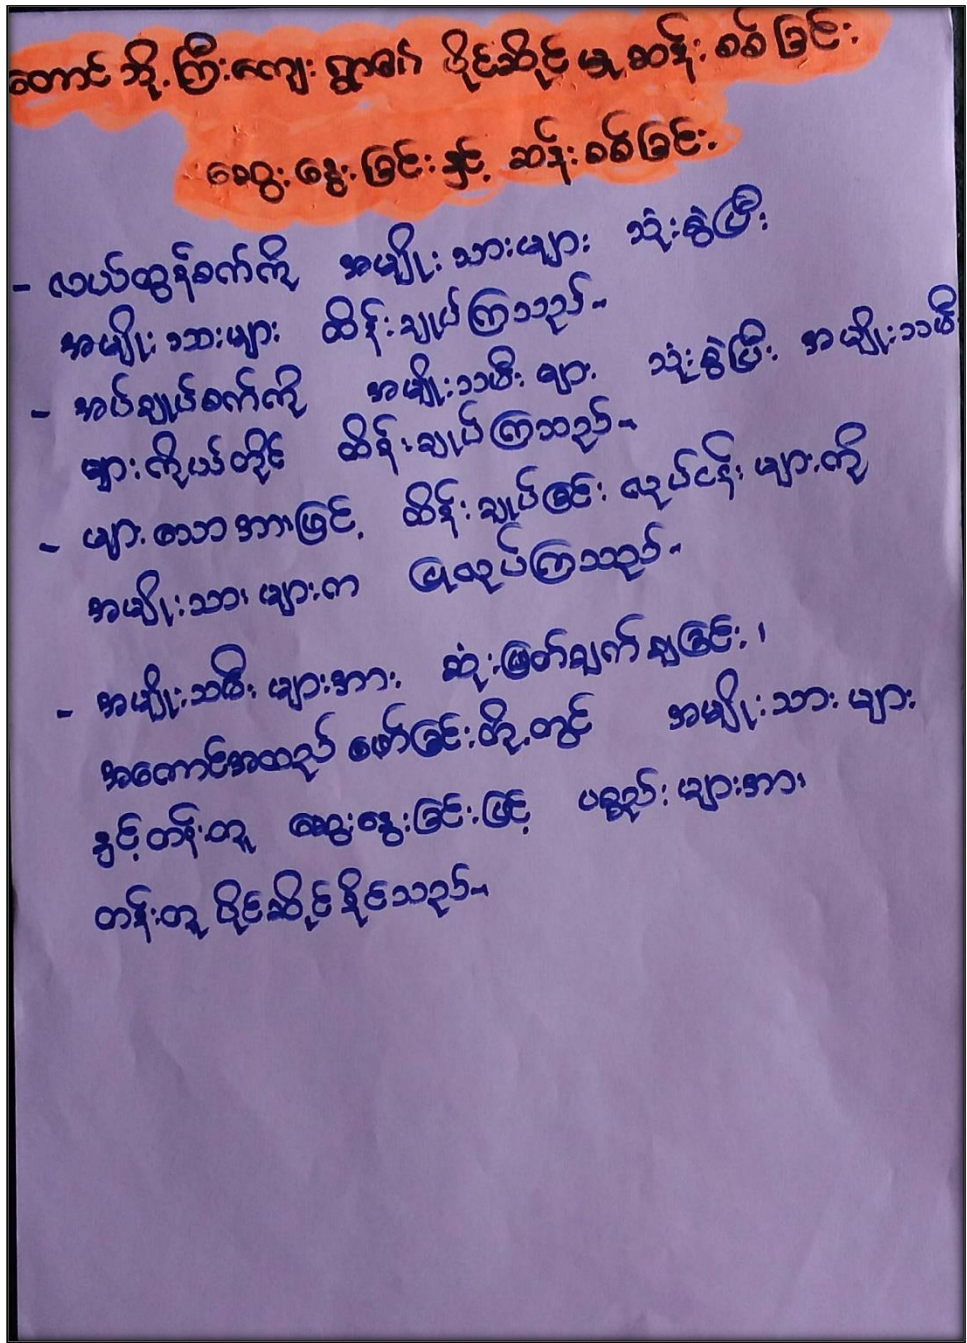 တောင်ဘို့ကြီးကျေးရွာ၏ ပိုင်ဆိုင်မှုဆန်းစစ်ခြင်း
ဆွေးနွေးခြင်းနှင့် ဆန်းစစ်ခြင်း
- လယ်ထွန်စက်ကို အမျိုးသားများ သုံးစွဲပြီး
အမျိုးသားများ ထိန်းချုပ်ကြသည်။
- အပ်ချုပ်စက်ကို အမျိုးသမီးများ သုံးစွဲပြီး အမျိုးသမီး
များကိုယ်တိုင် ထိန်းချုပ်ကြသည်။
- များသောအားဖြင့် ထိန်းချုပ်ခြင်း လုပ်ငန်းများကို
အမျိုးသားများက ပြုလုပ်ကြသည်။
- အမျိုးသမီးများအား ဆုံးဖြတ်ချက်ချခြင်း၊
အကောင်အထည်ဖော်ခြင်းတို့တွင် အမျိုးသားများ
နှင့်တန်းတူ ဆွေးနွေးခြင်းဖြင့် ပစ္စည်းများအား
တန်းတူပိုင်ဆိုင်နိုင်သည်။